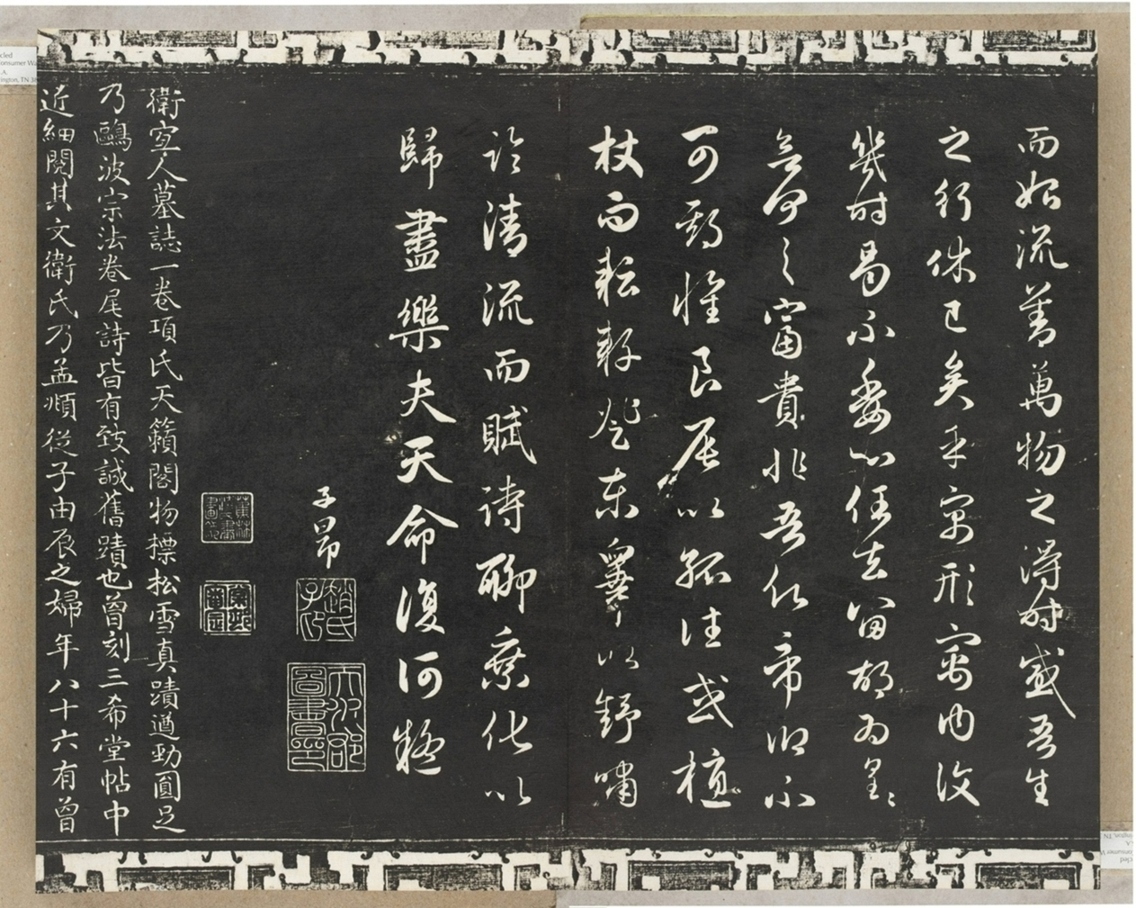 而始流善萬物之得時感吾生
之行休已矣乎寓形寓内復
幾時曷不委心任去留胡為皇〻
何之富貴非吾願帝鄉不
可期懷良辰以孤往或植
杖而耘耔登東皋以舒嘯
臨清流而賦詩聊乘化以
歸盡樂夫天命復何疑
子昂
趙氏子昂
棠邨審定
衛宜人墓誌一卷項氏天籟閣物標松雪真蹟遒勁圓足
乃鷗波宗法卷尾詩皆有致誠舊蹟也曾刻三希堂帖中
近細閱其文衛氏乃孟頫從子由辰之婦年八十六有曾